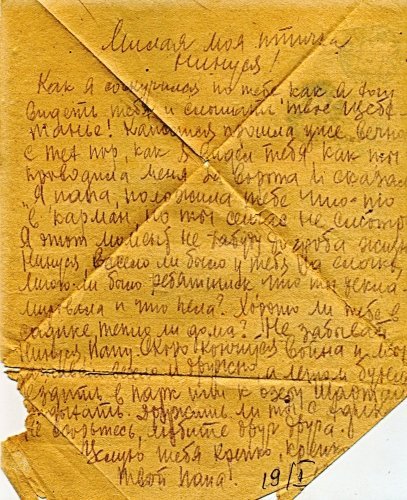 Милая моя птичка
Нинуся!
Как я соскучился по тебе как я хочу
видеть тебя и слышать твое щебе
танье! Кажется прошла уже вечно
с тех пор, как я видел тебя, как ты
проводила меня до ворот и сказал
"Я папа, положила тебе что-то
в карман, но ты сейчас не смотр
Я этот момент не забуду до гроба жизни
Нинуся весело ли было у тебя на елочке,
много ли было ребятишек что ты декла
мировала и что пела? Хорошо ли тебе в
садике тепло ли дома? Не забывай
Нинуся, папу. Скоро кончится война и
весело и дружно а летом будем
ездить в парк или к озеру
ли ты с
не ссорьтесь, любите друг друга.
Целую тебя крепко, крепко
Твой папа! 19/I